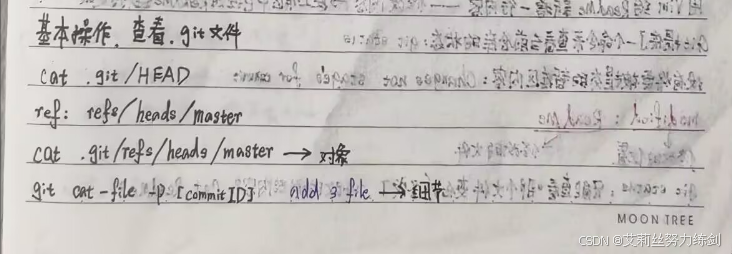 基本操作、查看.git文件
cat .git/HEAD
ref: refs/heads/master
cat .git/refs/heads/master → 对象
git cat-file -p [commitID] add 3 file → 细节
MOON TREE
CSDN @艾莉丝努力练剑